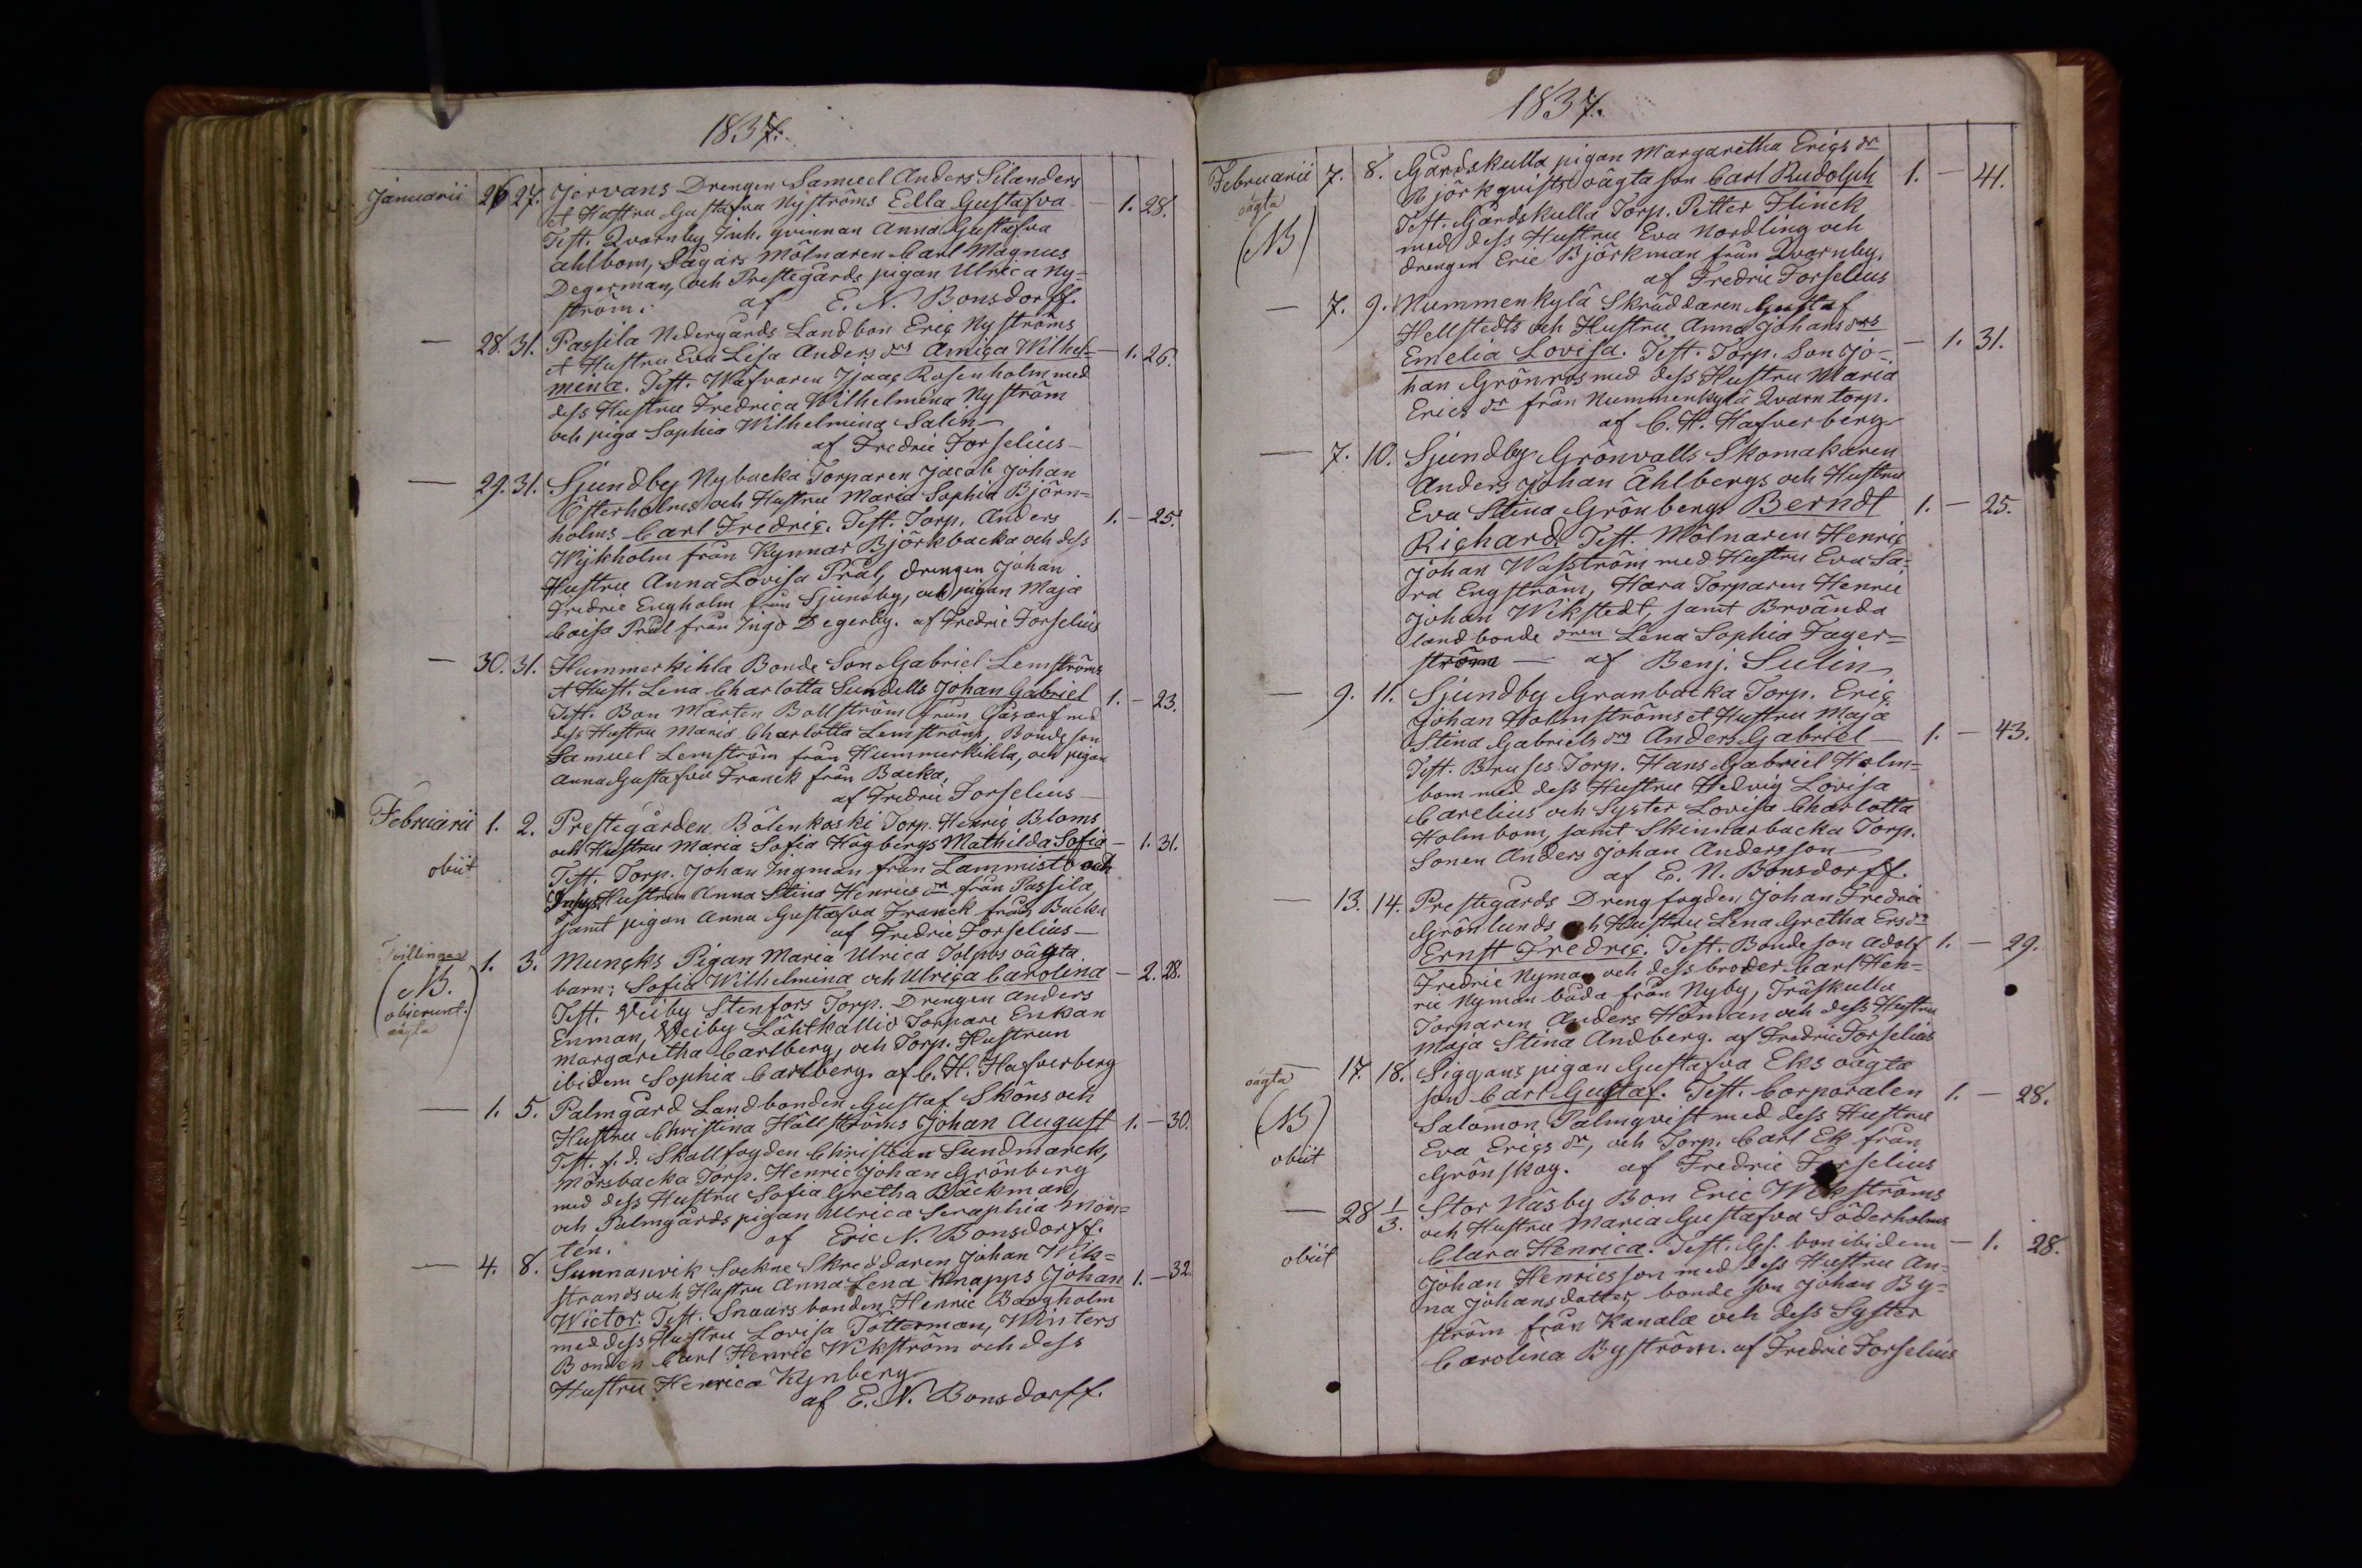 1837.
Januarii 26 27. Jervans Drengen Samuel Anders Silanders
et Hustru Gustafva Nyströms Edla Gustafva — 1. 28.
Test. Qvarnby Inh. qvinnan Anna Gustafva
Ahlbom, Sågars Mölnaren Carl Magnus
Degerman, och Prestegårds pigan Ulrica Ny=
ström. af E. N. Bonsdorff.
— 28. 31. Passila Nedergårds Landbon Eric Nyströms
et Hustru Eva Lisa Anders drs Amiça Wilhel= — 1. 26.
mina. Test. Wäfvaren Isaac Rosenholm med
dess Hustru Fredrica Wilhelmina Nyström
och piga Sophia Wilhelmina Salin
af Fredric Forselius
— 29. 31. Sjundby Nybacka Torparen Jacob Johan
Österholms och Hustru Maria Sophia Björn=
holms Carl Fredric. Test. Torp. Anders 1. — 25.
Wijkholm från Kynnar Björkbacka och dess
Hustru Anna Lovisa Prål, drengen Johan
Fredric Engholm från Sjundby, och pigan Maja
Caisa Prål från Ingo Degerby. af Fredric Forselius
— 30. 31. Hummerkihla Bonde Son Gabriel Lemströms
et Hust. Lena Charlotta Sundells Johan Gabriel 1. — 23.
Test. Bon Mårten Bollström från Gåsarf med
dess Hustru Maria Charlotta Lemström, Bonde son
Samuel Lemström från Hummerkihla, och pigan
Anna Gustafva Franck från Backa,
af Fredric Forselius
Februarii 1. 2. Prestegården Bölenkoski Torp. Henric Bloms
och Hustru Maria Sofia Högbergs Mathilda Sofia — 1. 31.
obiit Test. Torp. Johan Ingman från Lammisto och
Hustrun Anna Stina Henrics dr från Passila,
samt pigan Anna Gustafva Franck från Backa
af Fredric Forselius
Tvillingar 1. 3. Muncks Pigan Maria Ulrica Tolpos oägta
(NB. barn: Sofia Wilhelmina och Ulrica Carolina — 2. 28.
obierunt.) Test. Veiby Stenfors Torp. Drengen Anders
oägta Enman, Veiby Lähtkallio Torpare Enkan
Margaretha Carlberg, och Torp. Hustrun
ibidem Sophia Carlberg. af C. H. Hafverberg
— 1. 5. Palmgård Landbonden Gustaf Sköns och
Hustru Christina Hällströms Johan August 1. — 30.
Test. f. d. Skallfogden Christian Sundmarck,
Morsbacka Torp. Henric Johan Grönberg
med dess Hustru Sofia Gretha Bäckman,
och Palmgårds pigan Ulrica Seraphia Mon=
tén. af Eric N. Bonsdorff.
— 4. 8. Sunnanvik Sockne Skreddaren Johan Wik=
strands och Hustru Anna Lena Knapps Johan 1. — 32.
Wictor. Test. Snaars bonden Henric Bergholm
med dess Hustru Lovisa Totterman, Winters
Bonden Carl Henric Wikström och dess
Hustru Henrica Kynberg
af E. N. Bonsdorff.
1837.
Februarii 7. 8. Gårdskulla pigan Margaretha Erics dr
oägta Björkqvists oägta son Carl Rudolph 1. — 41.
(NB) Test. Gårdskulla Torp. Petter Flinck
med dess Hustru Eva Nordling och
drengen Eric Björkman från Qvarnby.
af Fredric Forselius
— 7. 9. Nummenkylä Skräddaren Gustaf
Hellstedts och Hustru Anna Johans drs
Emelia Lovisa. Test. Torp. Son Jo= — 1. 31.
han Grönros med dess Hustru Maria
Erics dr från Nummenkylä Qvarn torp.
af C. H. Hafverberg
— 7. 10. Sjundby Grönvalls Skomakaren
Anders Johan Ahlbergs och Hustru
Eva Stina Grönbergs Berndt 1. — 25.
Richard. Test. Mölnaren Henric
Johan Wasström med Hustru Eva Sa=
ra Engström, Hara Torparen Henric
Johan Wikstedt, samt Brvända
landbonde dren Lena Sophia Fager=
ström — af Benj. Sulin
— 9. 11. Sjundby Granbacka Torp. Eric
Johan Holmströms et Hustru Maja
Stina Gabriels drs Anders Gabriel 1. — 43.
Test. Bruses Torp. Hans Gabriel Holm=
bom med dess Hustru Hedvig Lovisa
Carelius och Syster Lovisa Charlotta
Holmbom, samt Skinnarbacka Torp.
Sonen Anders Johan Andersson
af E. N. Bonsdorff.
— 13. 14. Prestegårds Dreng fogden Johan Fredric
Grönlunds och Hustru Lena Gretha Ersdr
Ernst Fredric. Test. Bonde son Adolf 1. — 29.
Fredric Nyman och dess broder Carl Hen=
ric Nyman båda från Nyby, Träskulla
Torparen Anders Homan och dess Hustru
Maja Stina Andberg. af Fredric Forselius
oägta 17. 18. Siggans pigan Gustafva Eks oägta
(NB) son Carl Gustaf. Test. Corporalen 1. — 28.
Salomon Palmqvist med dess Hustru
obiit Eva Erics dr, och Torp. Carl Ek från
Grönskog. af Fredric Forselius
— 28 1/3. Stor Näsby Bon Eric Wikströms
och Hustru Maria Gustafva Söderholms
obiit Clara Henrica. Test. Gl. bon ibidem — 1. 28.
Johan Henricsson med dess Hustru An=
na Johansdotter, bonde son Johan By=
ström från Kanala och dess Syster
Carolina Byström. af Fredric Forselius